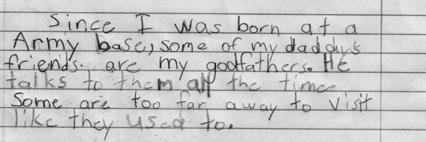 Since I was born at a
Army base, some of my daddy's
friends. are my godfathers. He
talks to them all the time
Some are too far away to visit
like they used to.